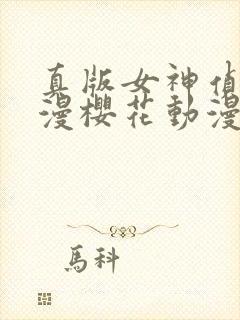 真版女神偵
漫櫻花動漫
馬科